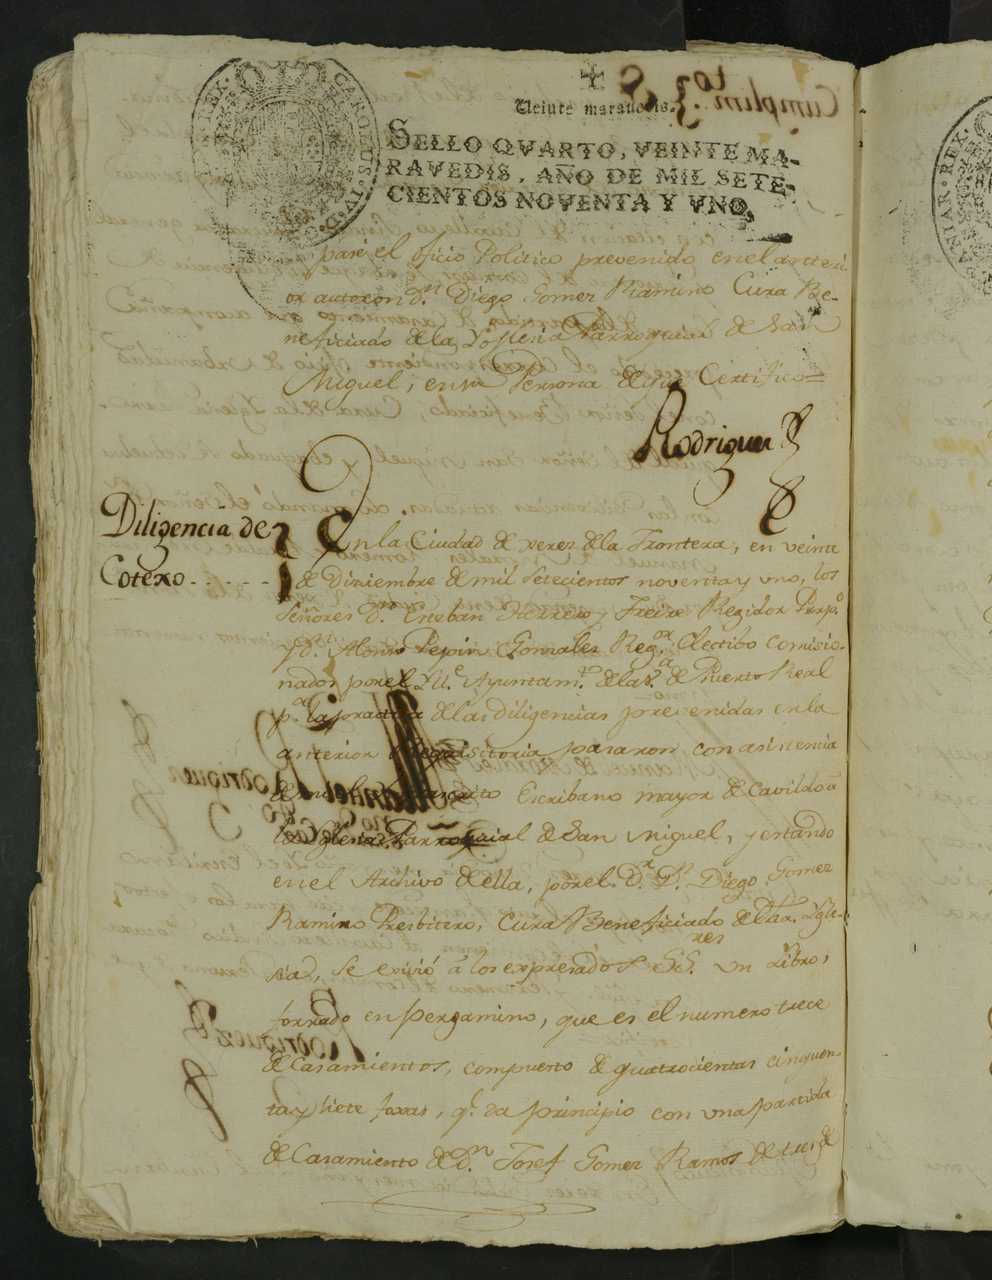 Veinte maravedis.
SELLO QVARTO, VEINTE MA-
RAVEDIS, AÑO DE MIL SETE-
CIENTOS NOVENTA Y VNO.
CAROLUS IV D.G. HISPANIAR REX
pasé el oficio Politico prevenido en el anteri-
or auto con Dn. Diego Gomez Ramiro Cura Be-
neficiado de la Yglesia Parroquial de San
Miguel, en su Persona de que Certifico=
Rodriguez
Diligencia de
Cotexo......
En la Ciudad de xerez de la Frontera, en veinte
de Diziembre de mil Setecientos noventa y uno, los
Señores Dn. Esteban Herrero y Freire Regidor Perpo.
y Dn. Alonso Pepin Gonzalez Regor. Electibo comisio-
nados por el Yll.e Ayuntam.to de la va. de Puerto Real
pa. la practica de las Diligencias prevenidas en la
anterior Requisitoria pasaron con asistencia
de mi el Escribano mayor de Cavildo a
la Yglesia Parroquial de San Miguel, y estando
en el Archivo de ella, por el Dr. Dn. Diego Gomez
Ramiro Presbitero, Cura Beneficiado de dha. Ygle-
sia, se exivió á los expresados SSres. un Libro,
forrado en pergamino, que es el numero trece
de Casamientos, compuesto de quatrocientas cinquen-
ta y siete foxas, q.e da principio con una partida
de Casamiento de Dn. Josef Gomez Ramos de tres de